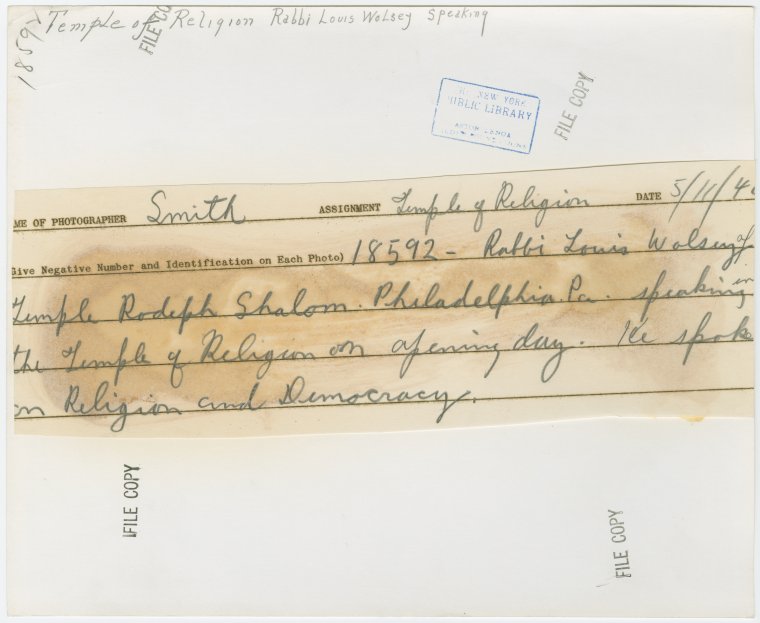 18592 Temple of Religion Rabbi Louis Wolsey Speaking
FILE CO
FILE COPY
NEW YORK
PUBLIC LIBRARY
ASTOR LENOX
ME OF PHOTOGRAPHER Smith ASSIGNMENT Temple of Religion DATE 5/11/40
Give Negative Number and Identification on Each Photo) 18592 - Rabbi Louis Wolsey of
Temple Rodeph Shalom. Philadelphia Pa. speaking in
the Temple of Religion on opening day. He spoke
on Religion and Democracy.
FILE COPY
FILE COPY